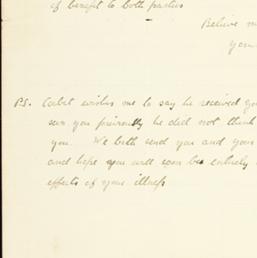 of benefit to both parties
Believe m
you
P.S. Cabel wishes me to say he received yo
seen you previously he did not think
you. We both send you and your
and hope you will soon be entirely
effects of your illness